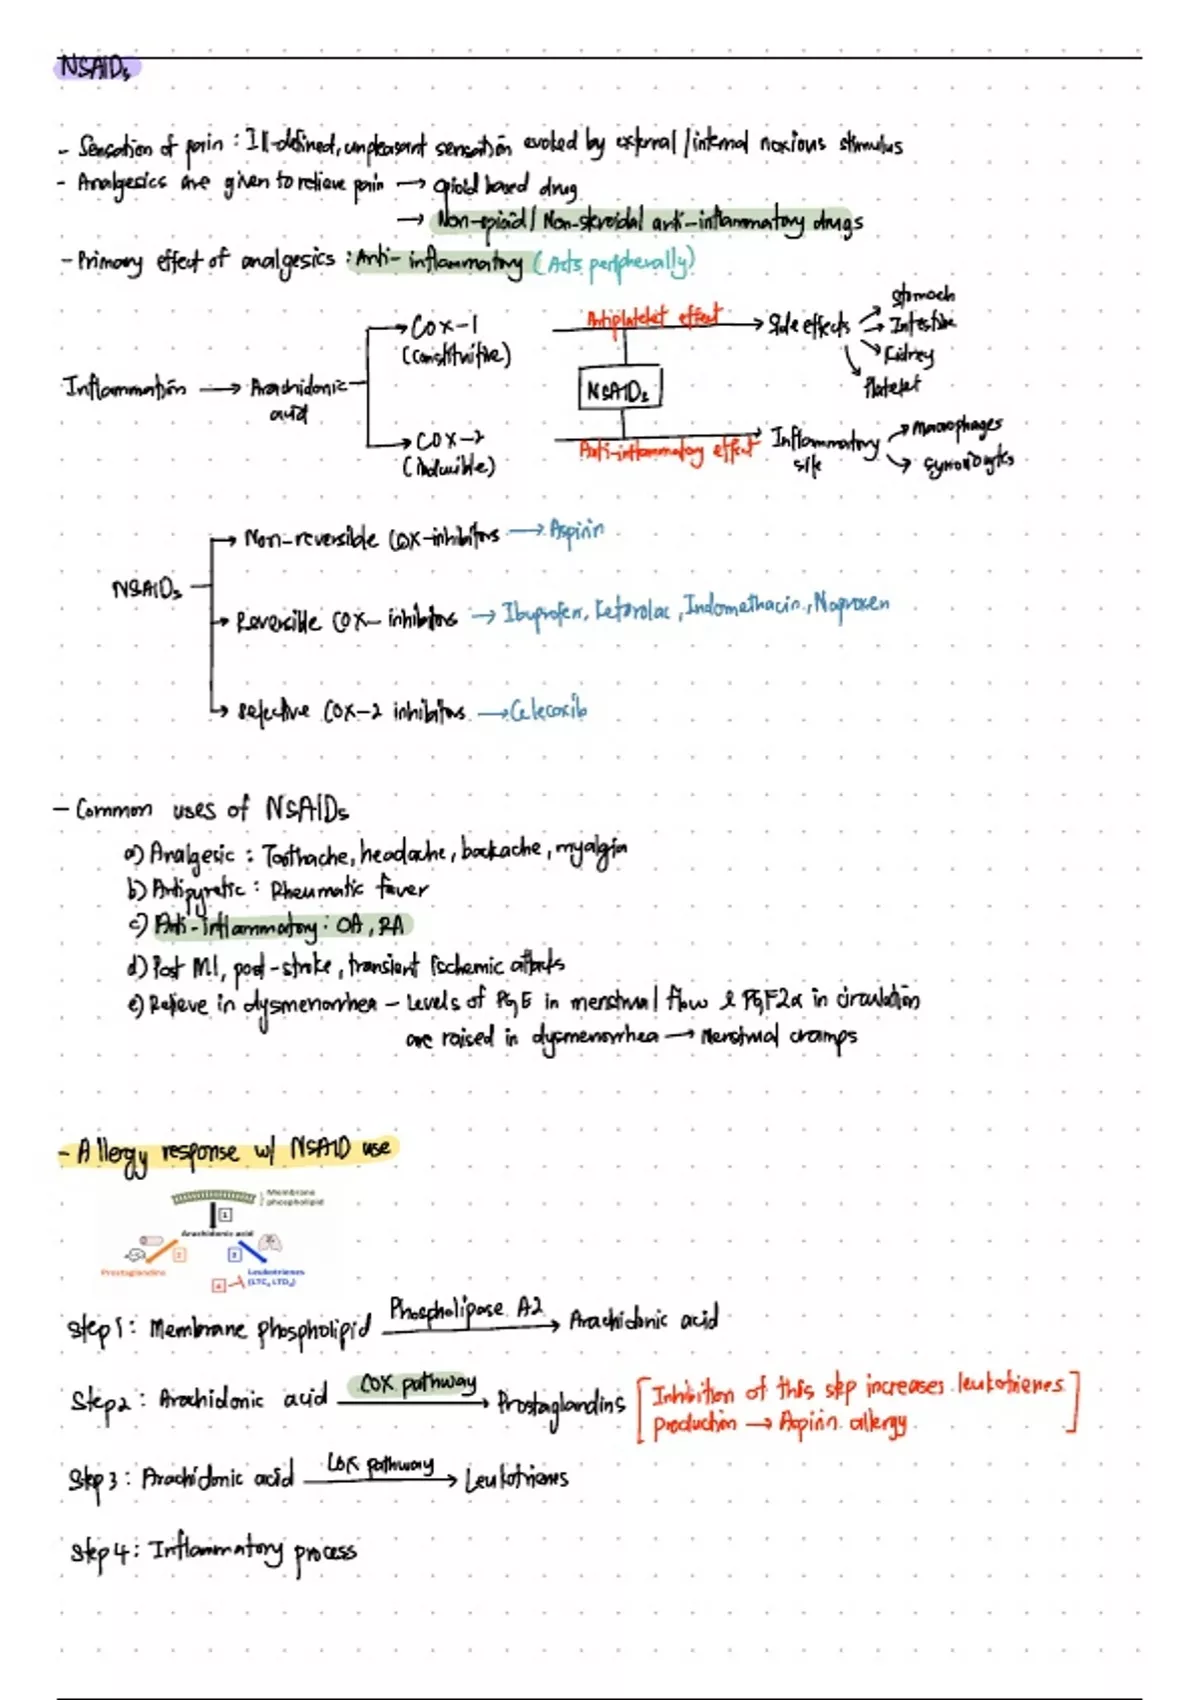 NSAIDs
- Sensation of pain : Ill-defined, unpleasant sensation evoked by external / internal noxious stimulus
- Analgesics are given to relieve pain → opioid based drug
→ Non-opioid / Non-steroidal anti-inflammatory drugs
- Primary effect of analgesics : Anti-inflammatory (Acts peripherally)
Inflammation → Arachidonic acid
→ COX-1 (constitutive)
Antiplatelet effect → Side effects
→ Stomach
→ Intestine
→ Kidney
→ Platelet
NSAIDs
→ COX-2 (inducible)
Anti-inflammatory effect → Inflammatory site
→ Macrophages
→ Synoviocytes
NSAIDs
→ Non-reversible COX-inhibitors → Aspirin
→ Reversible COX-inhibitors → Ibuprofen, Ketorolac, Indomethacin, Naproxen
→ Selective COX-2 inhibitors → Celecoxib
- Common uses of NSAIDs
a) Analgesic : Toothache, headache, backache, myalgia
b) Antipyretic : Rheumatic fever
c) Anti-inflammatory : OA, RA
d) Post MI, post-stroke, transient ischemic attacks
e) Relieve in dysmenorrhea - Levels of PgE in menstrual flow & PgF2α in circulation
are raised in dysmenorrhea → Menstrual cramps
- Allergy response w/ NSAID use
Membrane
phospholipid
1
Arachidonic acid
2 3
Prostaglandins
Leukotrienes
4 (LTC, LTD₄)
Step 1 : Membrane phospholipid Phospholipase A2 → Arachidonic acid
Step 2 : Arachidonic acid COX pathway → Prostaglandins [Inhibition of this step increases leukotrienes
production → Aspirin allergy]
Step 3 : Arachidonic acid LOX pathway → Leukotrienes
Step 4 : Inflammatory process